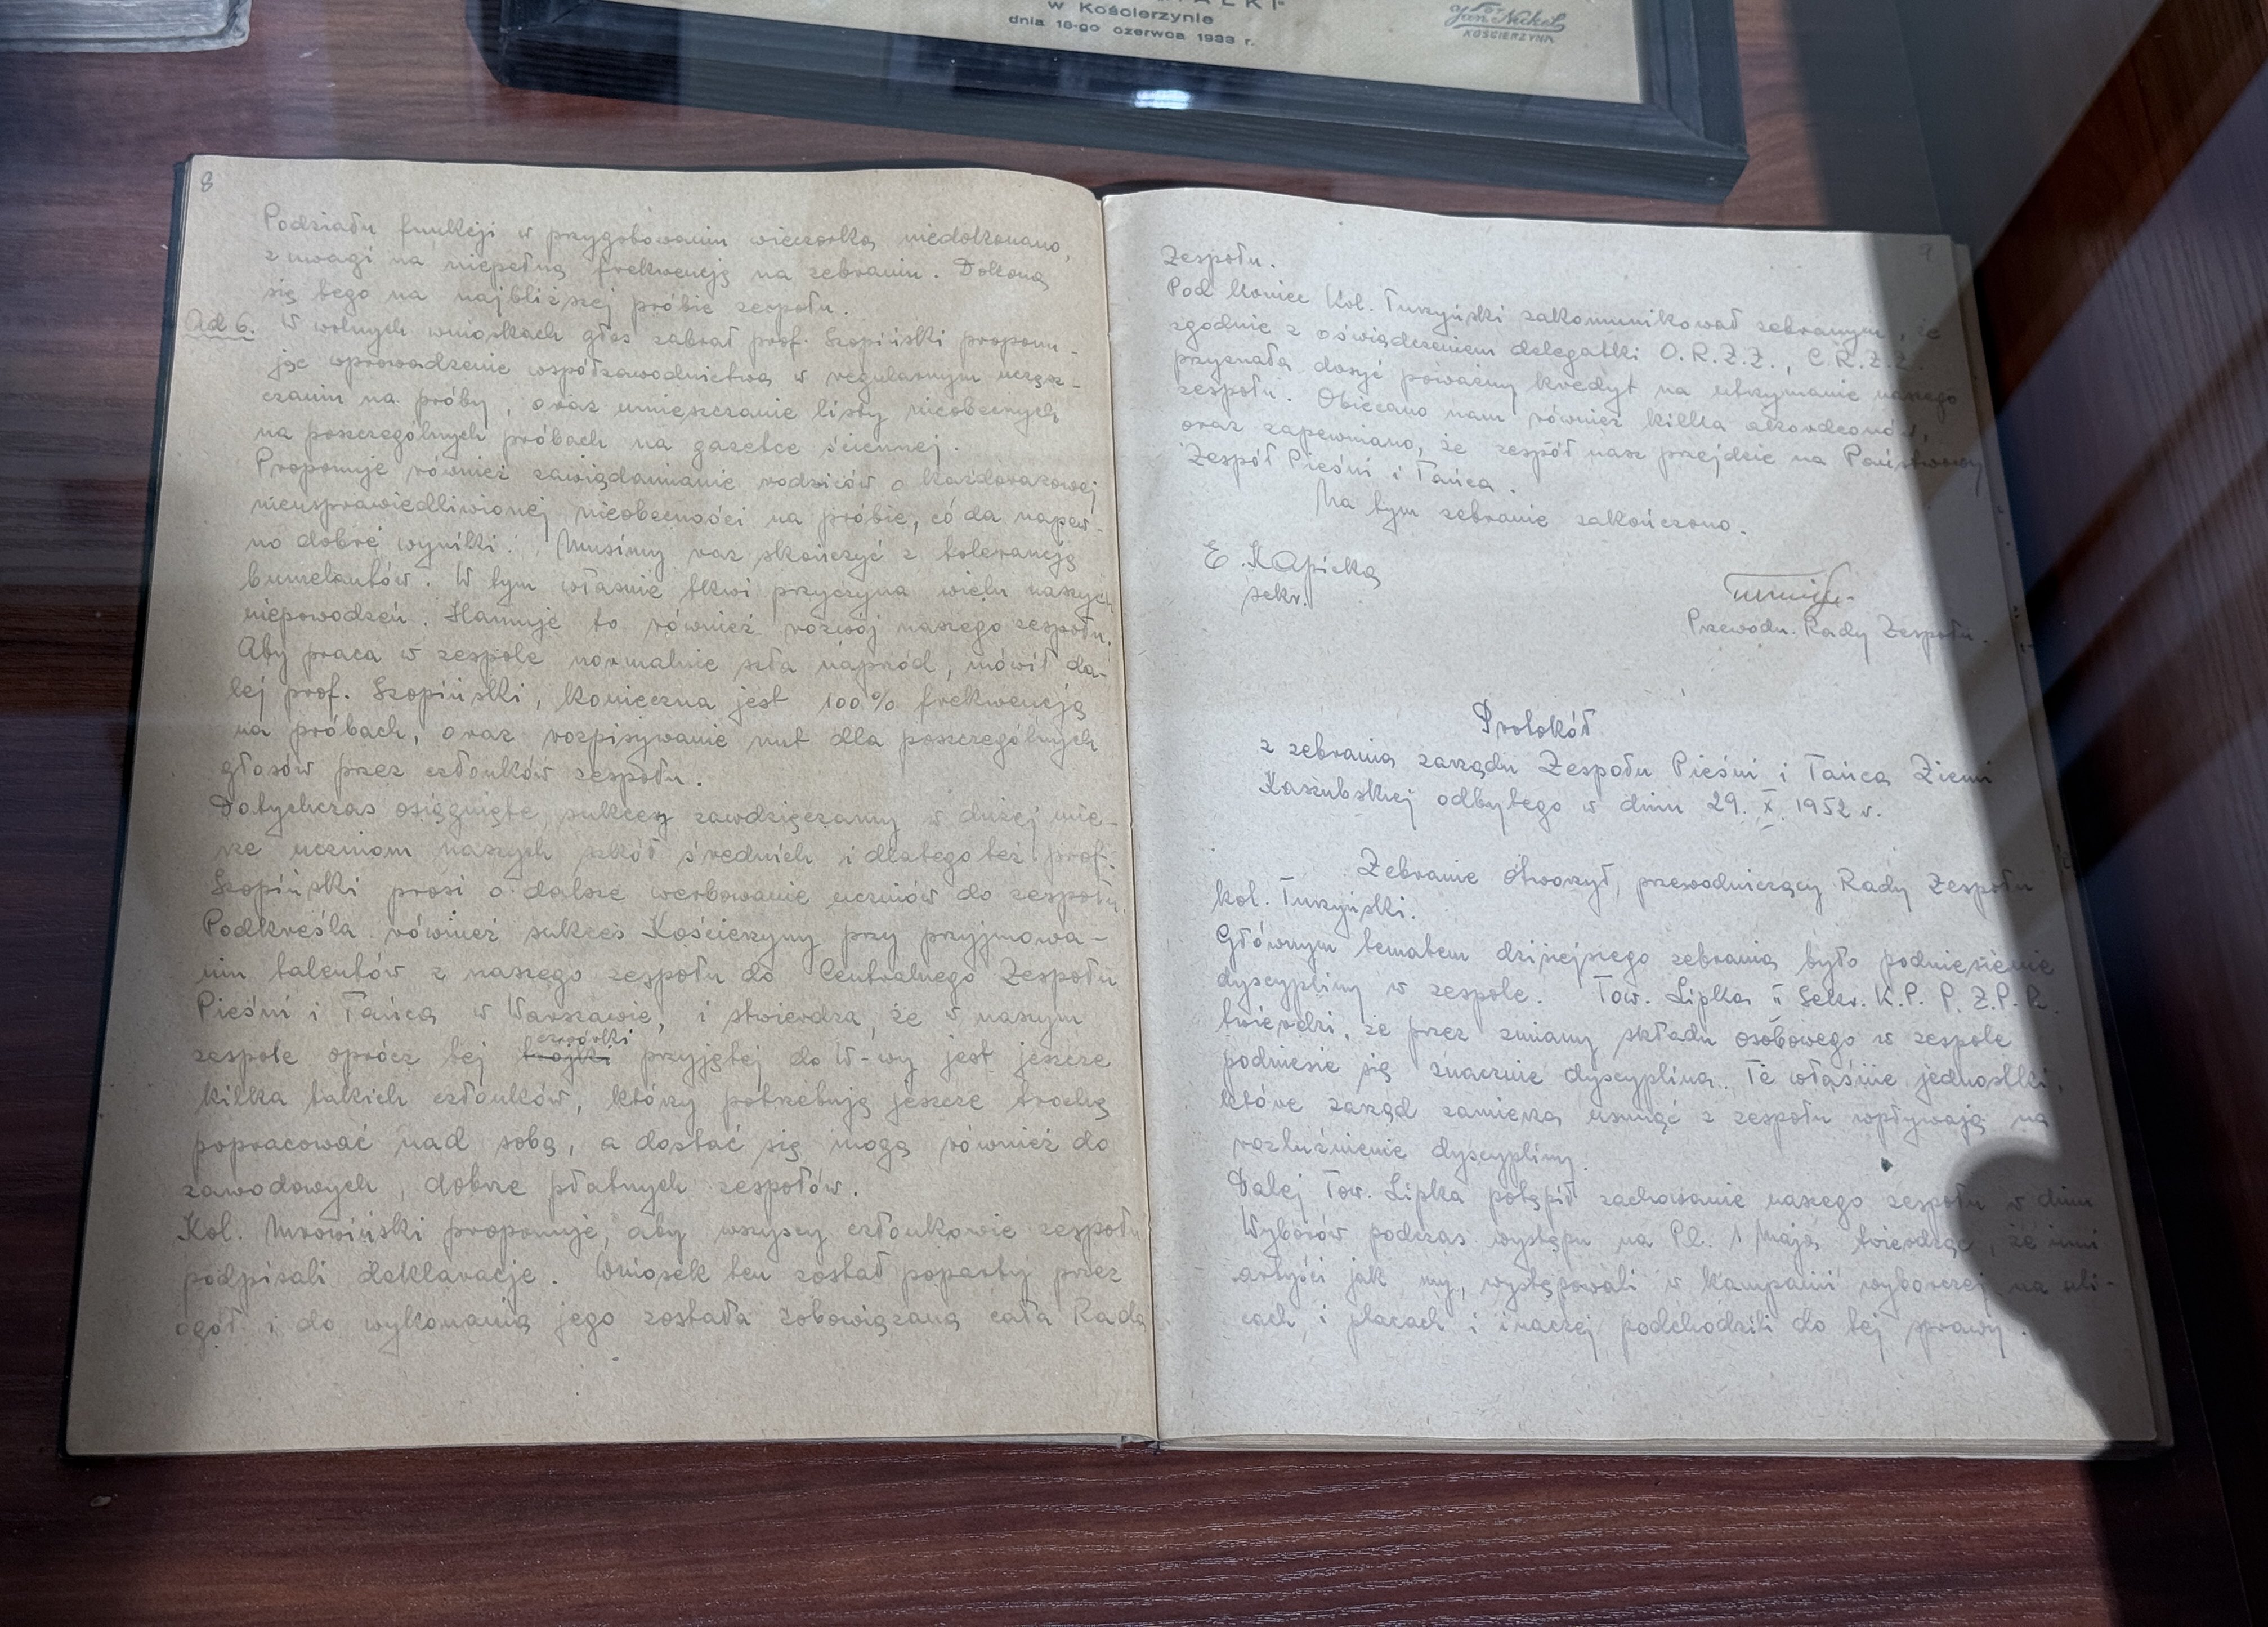 w Kościerzynie
dnia 18-go czerwca 1933 r.
Fot
Jan Nickel
KOŚCIERZYNA
8
Podziału funkcji w przygotowaniu wieczorka niedokonano,
z uwagi na niepełną frekwencję na zebraniu. Dokona
się tego na najbliższej próbie zespołu.
Ad 6. W wolnych wnioskach głos zabrał prof. Szopiński proponu-
jąc wprowadzenie współzawodnictwa w regularnym uczęsz-
czaniu na próby, oraz umieszczanie listy nieobecnych
na poszczególnych próbach na gazetce ściennej.
Proponuje również zawiadamianie rodziców o każdorazowej
nieusprawiedliwionej nieobecności na próbie, co da napew-
no dobre wyniki. Musimy raz skończyć z tolerancją
bumelantów. W tym właśnie tkwi przyczyna wielu naszych
niepowodzeń. Hamuje to również rozwój naszego zespołu.
Aby praca w zespole normalnie szła naprzód, mówił da-
lej prof. Szopiński, konieczna jest 100% frekwencja
na próbach, oraz rozpisywanie nut dla poszczególnych
głosów przez członków zespołu.
Dotychczas osiągnięte sukcesy zawdzięczamy w dużej mie-
rze uczniom naszych szkół średnich i dlatego też prof.
Szopiński prosi o dalsze werbowanie uczniów do zespołu.
Podkreśla również sukces Kościerzyny przy przyjmowa-
niu talentów z naszego zespołu do Centralnego Zespołu
Pieśni i Tańca w Warszawie, i stwierdza, że w naszym
czwórki
zespole oprócz tej trojki przyjętej do W-wy jest jeszcze
kilka takich członków, którzy potrzebują jeszcze trochę
popracować nad sobą, a dostać się mogą również do
zawodowych, dobrze płatnych zespołów.
Kol. Mrowiński proponuje, aby wszyscy członkowie zespołu
podpisali deklaracje. Wniosek ten został poparty przez
ogół i do wykonania jego została zobowiązana cała Rada
9
Zespołu.
Pod koniec Kol. Turzyński zakomunikował zebranym, że
zgodnie z oświadczeniem delegatki O.R.Z.Z., C.R.Z.Z.
przyznała dosyć poważny kredyt na utrzymanie naszego
zespołu. Obiecano nam również kilka akordeonów,
oraz zapewniano, że zespół nasz przejdzie na Państwowy
Zespół Pieśni i Tańca.
Na tym zebranie zakończono.
E. Kapicka
sekr.
Przewodn. Rady Zespołu.
Protokół
z zebrania zarządu Zespołu Pieśni i Tańca Ziemi
Kaszubskiej odbytego w dniu 29. X. 1952 r.
Zebranie otworzył, przewodniczący Rady Zespołu
kol. Turzyński.
Głównym tematem dzisiejszego zebrania było podniesienie
dyscypliny w zespole. Tow. Lipka II Sekr. K.P. P.Z.P.R.
twierdzi, że przez zmianę składu osobowego w zespole
podniesie się znacznie dyscyplina. Te właśnie jednostki,
które zarząd zamierza usunąć z zespołu wpływają na
rozluźnienie dyscypliny.
Dalej Tow. Lipka potępił zachowanie naszego zespołu w dniu
Wyborów podczas występu na Pl. 1 Maja twierdząc, że inni
artyści jak my, występowali w kampanii wyborczej na uli-
cach i placach i inaczej podchodzili do tej sprawy.